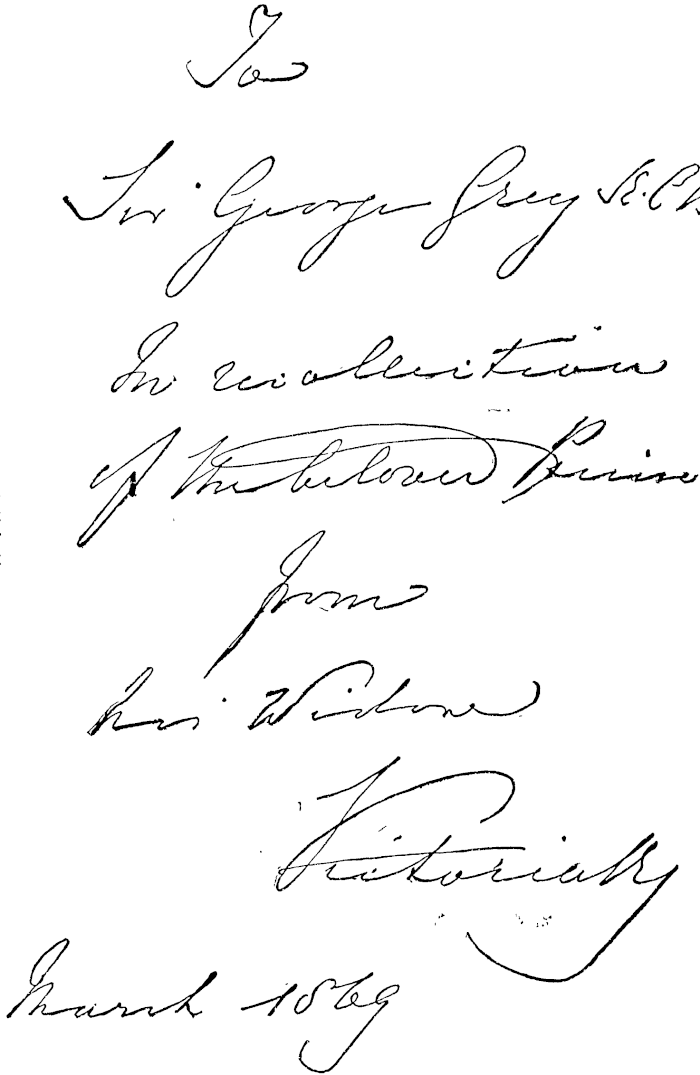 To
Sir George Grey K.C.B
In recollection
of the beloved Prince
from
his Widow
Victoria R
March 1869